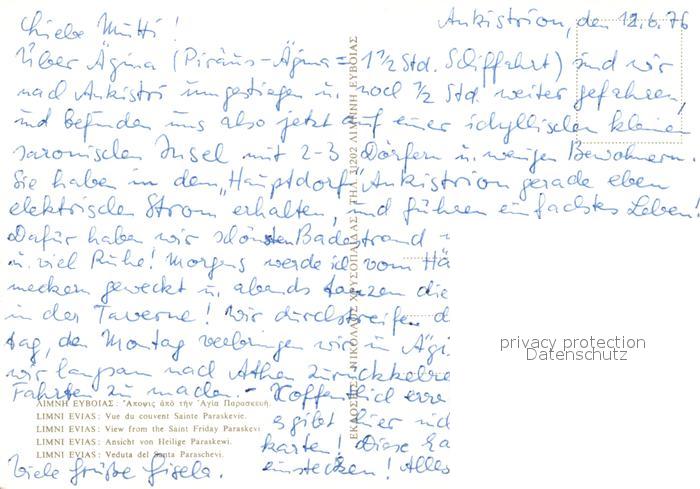 Ankistrion, den 12.6.76
Liebe Mutti!
Über Ägina (Piräus-Ägina = 1 1/2 Std. Schiffahrt) sind wir
nach Ankistri umgestiegen u. noch 1/2 Std. weiter gefahren,
und befinden uns also jetzt auf einer idyllischen kleinen
saronischen Insel mit 2-3 Dörfern u. wenigen Bewohnern.
Sie haben in dem "Hauptdorf" Ankistrion gerade eben
elektrischen Strom erhalten, und führen einfachstes Leben!
Dafür haben wir schönsten Badestrand
u. viel Ruhe! Morgens werde ich vom Hä
meckern geweckt u. abends tanzen die
in der Taverne! Wir durchstreifen d
tag, den Montag verbringen wir in Ägi
wir langsam nach Athen zurückkehre
Fahrten zu machen. - Hoffentlich
es gibt hier
karten! Diese
einstecken! Alles
Viele Grüße Gisela.
ΛΙΜΝΗ ΕΥΒΟΙΑΣ: Ἄποψις ἀπό τήν Ἁγία Παρασκευή.
LIMNI EVIAS: Vue du couvent Sainte Paraskevie.
LIMNI EVIAS: View from the Saint Friday Paraskevi
LIMNI EVIAS: Ansicht von Heilige Paraskewi.
LIMNI EVIAS: Veduta del Santa Paraschevi.
ΕΚΔΟΣΗΣ: ΝΙΚΟΛΑΟΣ ΧΡΥΣΟΠΑΙΔΑΣ ΤΗΛ. 31202 ΛΙΜΝΗ ΕΥΒΟΙΑΣ
privacy protection
Datenschutz